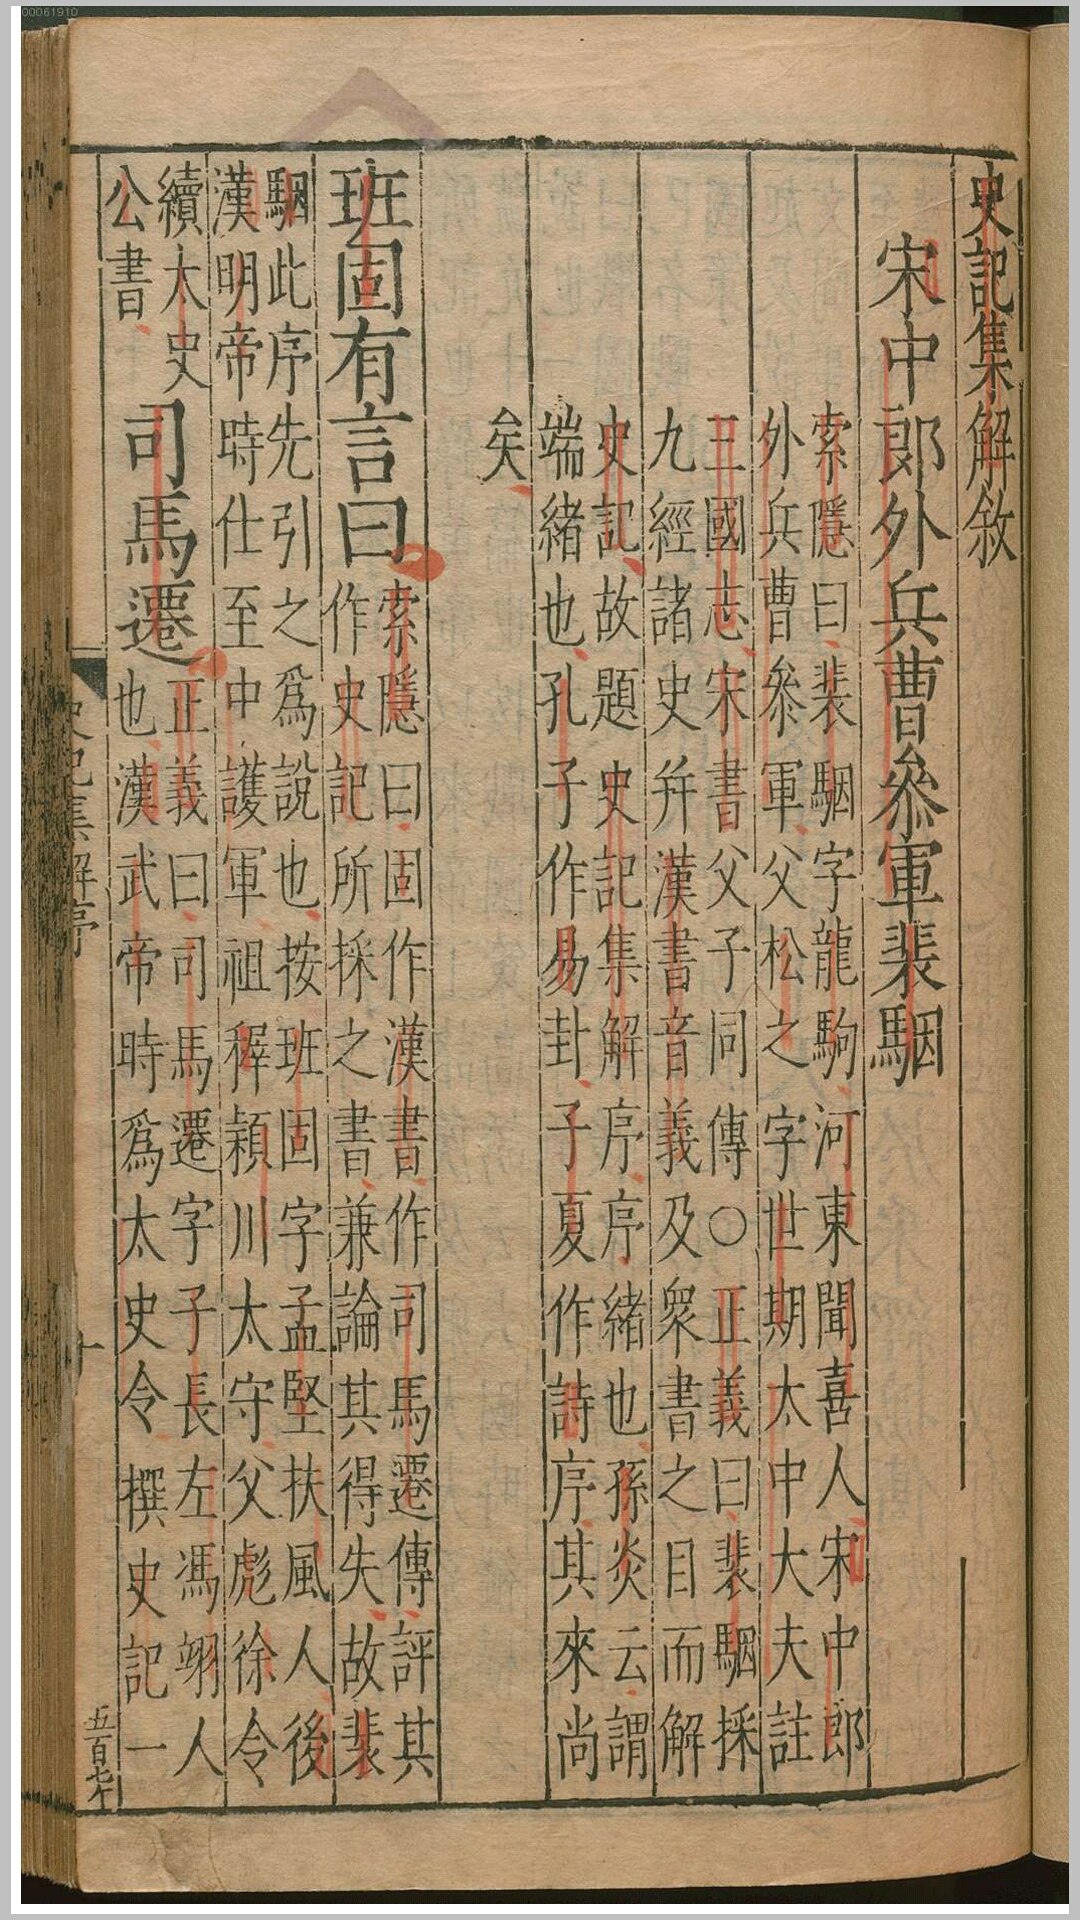 史記集解敘
宋中郎外兵曹叅軍裴駰
索隱曰裴駰字龍駒河東聞喜人宋中郎
外兵曹叅軍父松之字世期太中大夫註
三國志宋書父子同傳○正義曰裴駰採
九經諸史幷漢書音義及衆書之目而解
史記故題史記集解序序緒也孫炎云謂
端緒也孔子作易卦子夏作詩序其來尚
矣
班固有言曰
索隱曰固作漢書作司馬遷傳評其
作史記所採之書兼論其得失故裴
駰此序先引之爲說也按班固字孟堅扶風人後
漢明帝時仕至中護軍祖穉潁川太守父彪徐令
續太史
公書
司馬遷
正義曰司馬遷字子長左馮翊人
也漢武帝時爲太史令撰史記一
史記集解序
十
五百七十
00061910